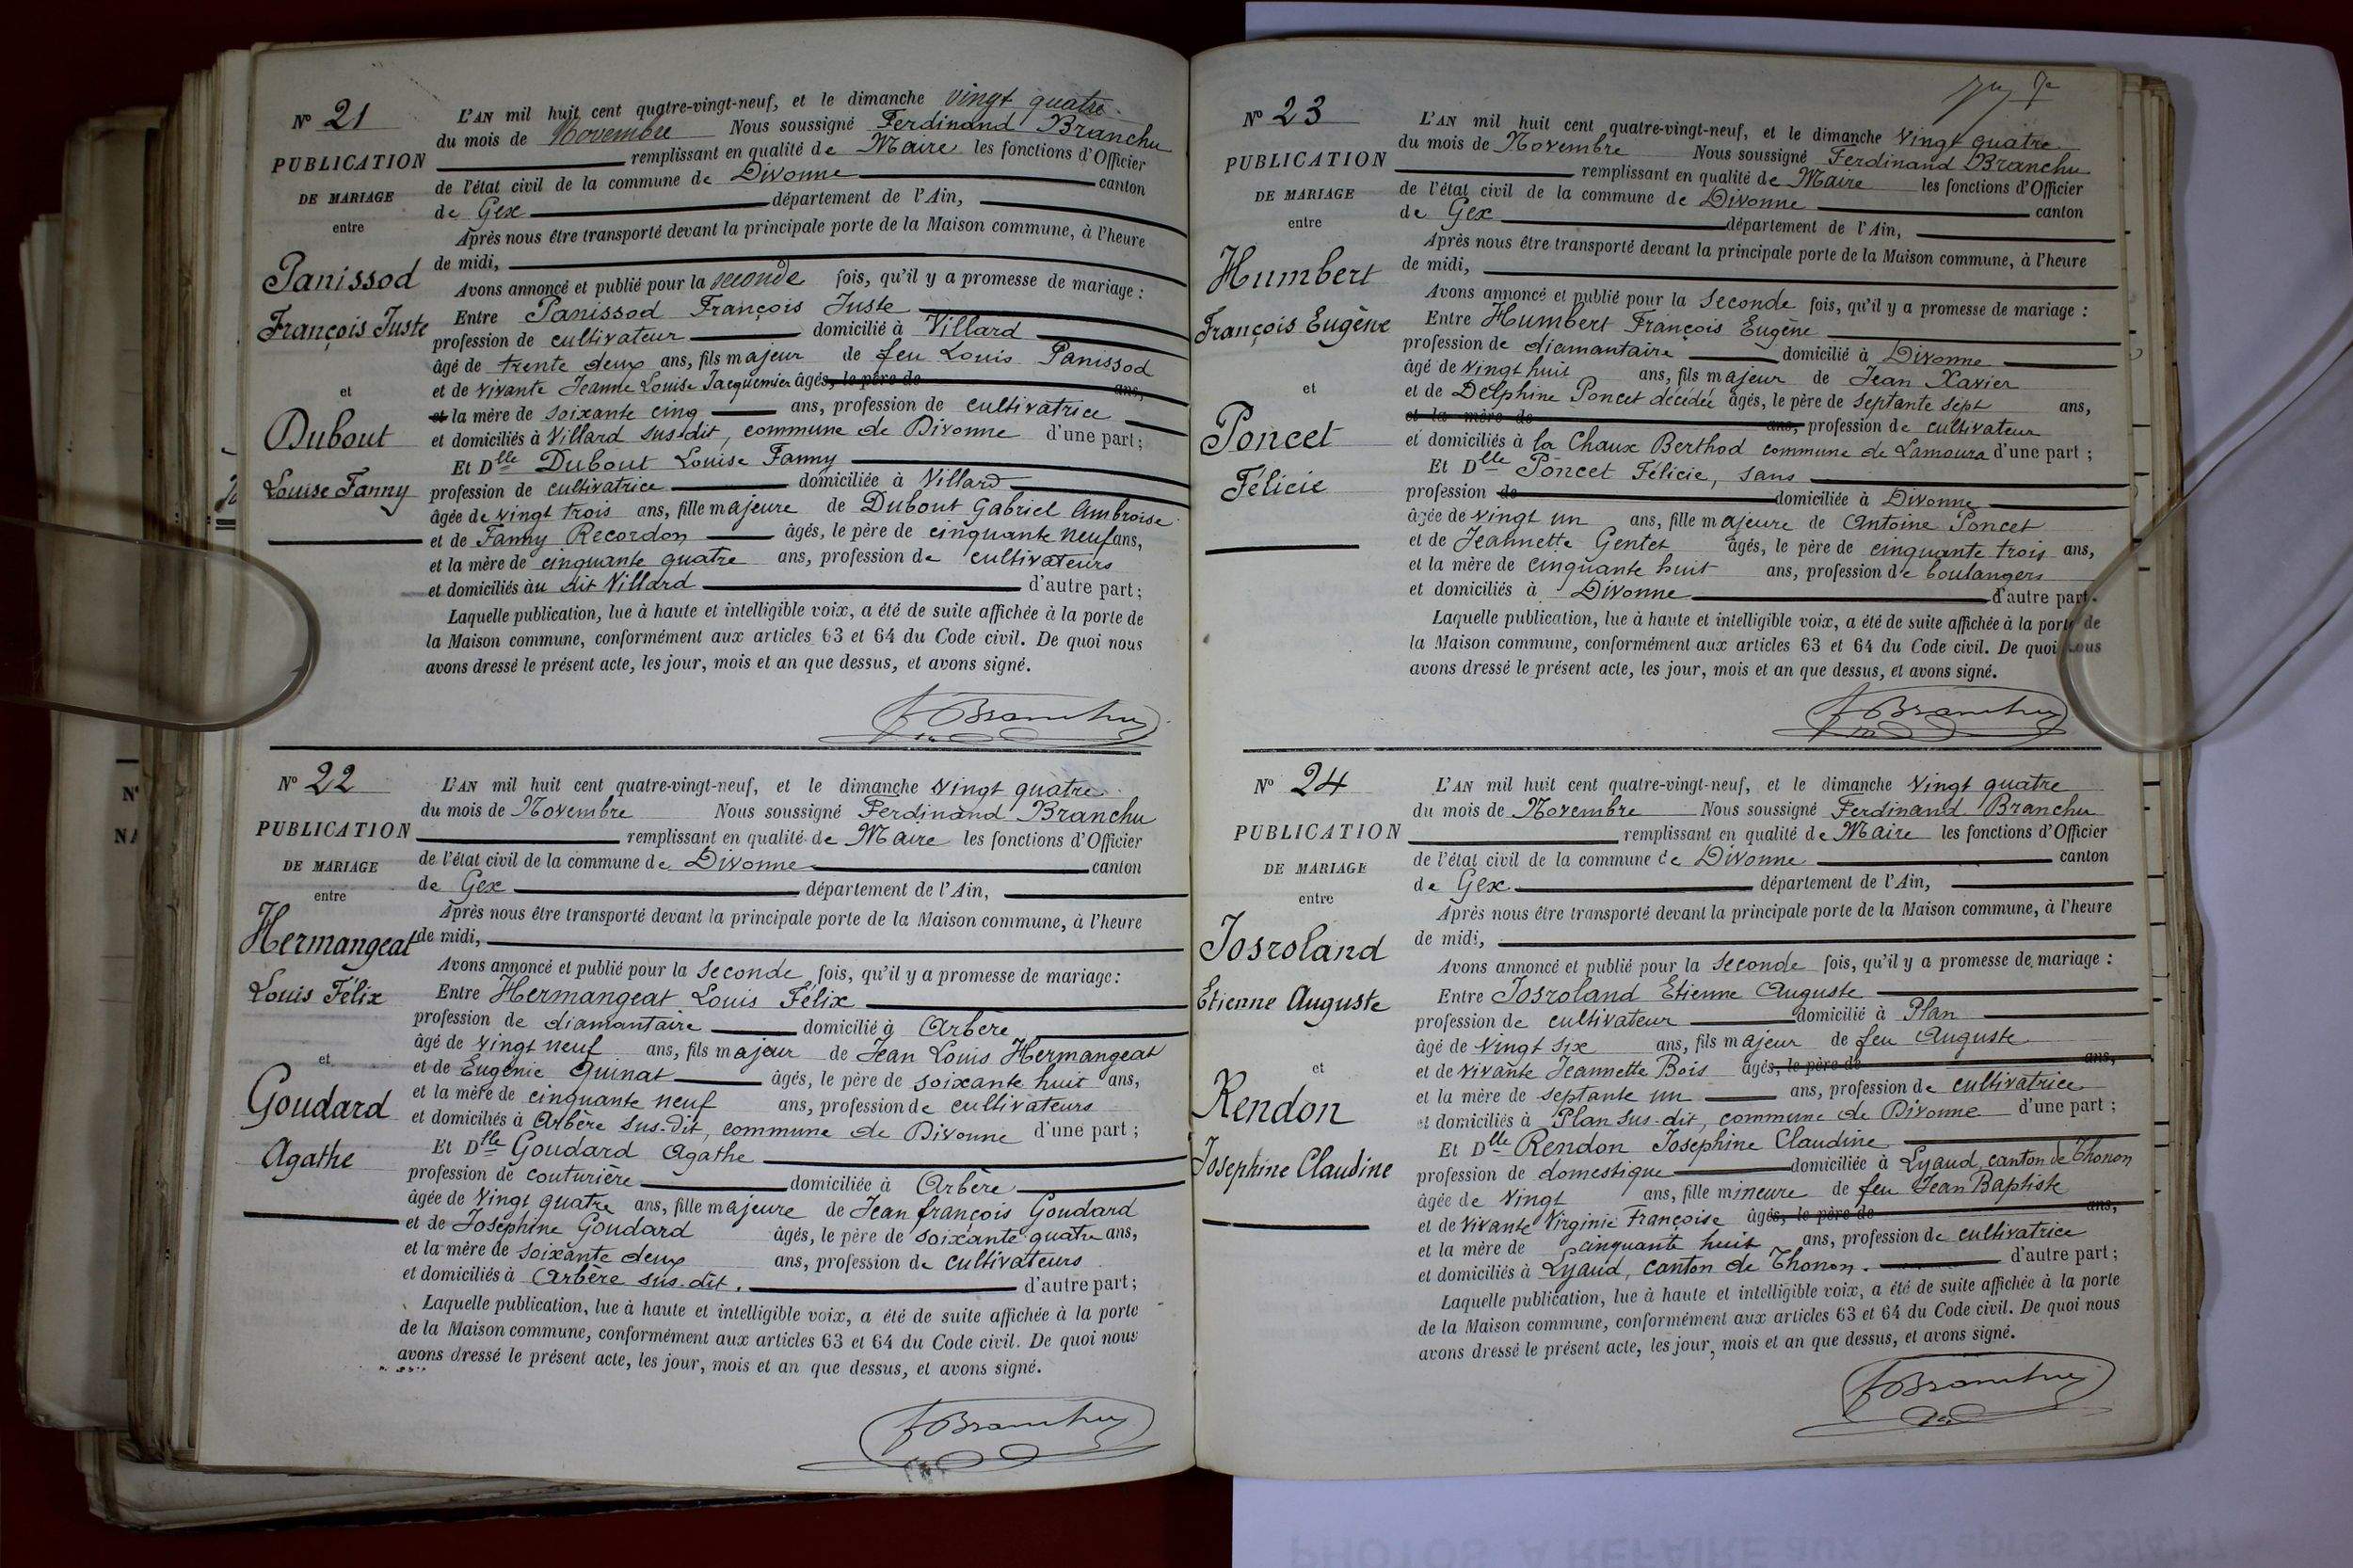 N° 21
PUBLICATION
DE MARIAGE
entre
Panissod
François Juste
et
Dubout
Louise Fanny
L'AN mil huit cent quatre-vingt-neuf, et le dimanche vingt quatre
du mois de Novembre Nous soussigné Ferdinand Branchu
remplissant en qualité de Maire les fonctions d'Officier
de l'état civil de la commune de Divonne canton
de Gex département de l'Ain,
Après nous être transporté devant la principale porte de la Maison commune, à l'heure
de midi,
Avons annoncé et publié pour la seconde fois, qu'il y a promesse de mariage :
Entre Panissod François Juste
profession de cultivateur domicilié à Villard
âgé de trente deux ans, fils majeur de feu Louis Panissod
et de vivante Jeanne Louise Jacquemier âgés, le père de ans,
et la mère de soixante cinq ans, profession de cultivatrice
et domiciliés à Villard sus-dit, commune de Divonne d'une part;
Et Dlle Dubout Louise Fanny
profession de cultivatrice domiciliée à Villard
âgée de vingt trois ans, fille majeure de Dubout Gabriel Ambroise
et de Fanny Recordon âgés, le père de cinquante neuf ans,
et la mère de cinquante quatre ans, profession de cultivateurs
et domiciliés àu dit Villard d'autre part;
Laquelle publication, lue à haute et intelligible voix, a été de suite affichée à la porte de
la Maison commune, conformément aux articles 63 et 64 du Code civil. De quoi nous
avons dressé le présent acte, les jour, mois et an que dessus, et avons signé.
F Branchu
N° 22
PUBLICATION
DE MARIAGE
entre
Hermangeat
Louis Félix
et
Goudard
Agathe
L'AN mil huit cent quatre-vingt-neuf, et le dimanche vingt quatre
du mois de Novembre Nous soussigné Ferdinand Branchu
remplissant en qualité de Maire les fonctions d'Officier
de l'état civil de la commune de Divonne canton
de Gex département de l'Ain,
Après nous être transporté devant la principale porte de la Maison commune, à l'heure
de midi,
Avons annoncé et publié pour la seconde fois, qu'il y a promesse de mariage :
Entre Hermangeat Louis Félix
profession de diamantaire domicilié à Arbère
âgé de vingt neuf ans, fils majeur de Jean Louis Hermangeat
et de Eugénie Quinat âgés, le père de soixante huit ans,
et la mère de cinquante neuf ans, profession de cultivateurs
et domiciliés à Arbère sus-dit, commune de Divonne d'une part ;
Et Dlle Goudard Agathe
profession de couturière domiciliée à Arbère
âgée de vingt quatre ans, fille majeure de Jean françois Goudard
et de Joséphine Goudard âgés, le père de soixante quatre ans,
et la mère de soixante deux ans, profession de cultivateurs
et domiciliés à Arbère sus-dit. d'autre part ;
Laquelle publication, lue à haute et intelligible voix, a été de suite affichée à la porte
de la Maison commune, conformément aux articles 63 et 64 du Code civil. De quoi nous
avons dressé le présent acte, les jour, mois et an que dessus, et avons signé.
F Branchu
N° 23
PUBLICATION
DE MARIAGE
entre
Humbert
François Eugène
et
Poncet
Félicie
L'AN mil huit cent quatre-vingt-neuf, et le dimanche vingt quatre
du mois de Novembre Nous soussigné Ferdinand Branchu
remplissant en qualité de Maire les fonctions d'Officier
de l'état civil de la commune de Divonne canton
de Gex département de l'Ain,
Après nous être transporté devant la principale porte de la Maison commune, à l'heure
de midi,
Avons annoncé et publié pour la seconde fois, qu'il y a promesse de mariage :
Entre Humbert François Eugène
profession de diamantaire domicilié à Divonne
âgé de vingt huit ans, fils majeur de Jean Xavier
et de Delphine Poncet décédée âgés, le père de septante sept ans,
et la mère de ans, profession de cultivateur
et domiciliés à la Chaux Berthod commune de Lamoura d'une part ;
Et Dlle Poncet Félicie, sans
profession de domiciliée à Divonne
âgée de vingt un ans, fille majeure de Antoine Poncet
et de Jeannette Gentet âgés, le père de cinquante trois ans,
et la mère de cinquante huit ans, profession de boulangers
et domiciliés à Divonne d'autre part.
Laquelle publication, lue à haute et intelligible voix, a été de suite affichée à la porte de
la Maison commune, conformément aux articles 63 et 64 du Code civil. De quoi nous
avons dressé le présent acte, les jour, mois et an que dessus, et avons signé.
F Branchu
N° 24
PUBLICATION
DE MARIAGE
entre
Josroland
Etienne Auguste
et
Rendon
Josephine Claudine
L'AN mil huit cent quatre-vingt-neuf, et le dimanche vingt quatre
du mois de Novembre Nous soussigné Ferdinand Branchu
remplissant en qualité de Maire les fonctions d'Officier
de l'état civil de la commune de Divonne canton
de Gex département de l'Ain,
Après nous être transporté devant la principale porte de la Maison commune, à l'heure
de midi,
Avons annoncé et publié pour la seconde fois, qu'il y a promesse de mariage :
Entre Josroland Etienne Auguste
profession de cultivateur domicilié à Plan
âgé de vingt six ans, fils majeur de feu Auguste
et de vivante Jeannette Bois âgés, le père de ans,
et la mère de septante un ans, profession de cultivatrice
et domiciliés à Plan sus-dit, commune de Divonne d'une part ;
Et Dlle Rendon Josephine Claudine
profession de domestique domiciliée à Lyaud, canton de Thonon
âgée de vingt ans, fille mineure de feu Jean Baptiste
et de vivante Virginie Françoise âgés, le père de ans,
et la mère de cinquante huit ans, profession de cultivatrice
et domiciliés à Lyaud, canton de Thonon. d'autre part ;
Laquelle publication, lue à haute et intelligible voix, a été de suite affichée à la porte
de la Maison commune, conformément aux articles 63 et 64 du Code civil. De quoi nous
avons dressé le présent acte, les jour, mois et an que dessus, et avons signé.
F Branchu